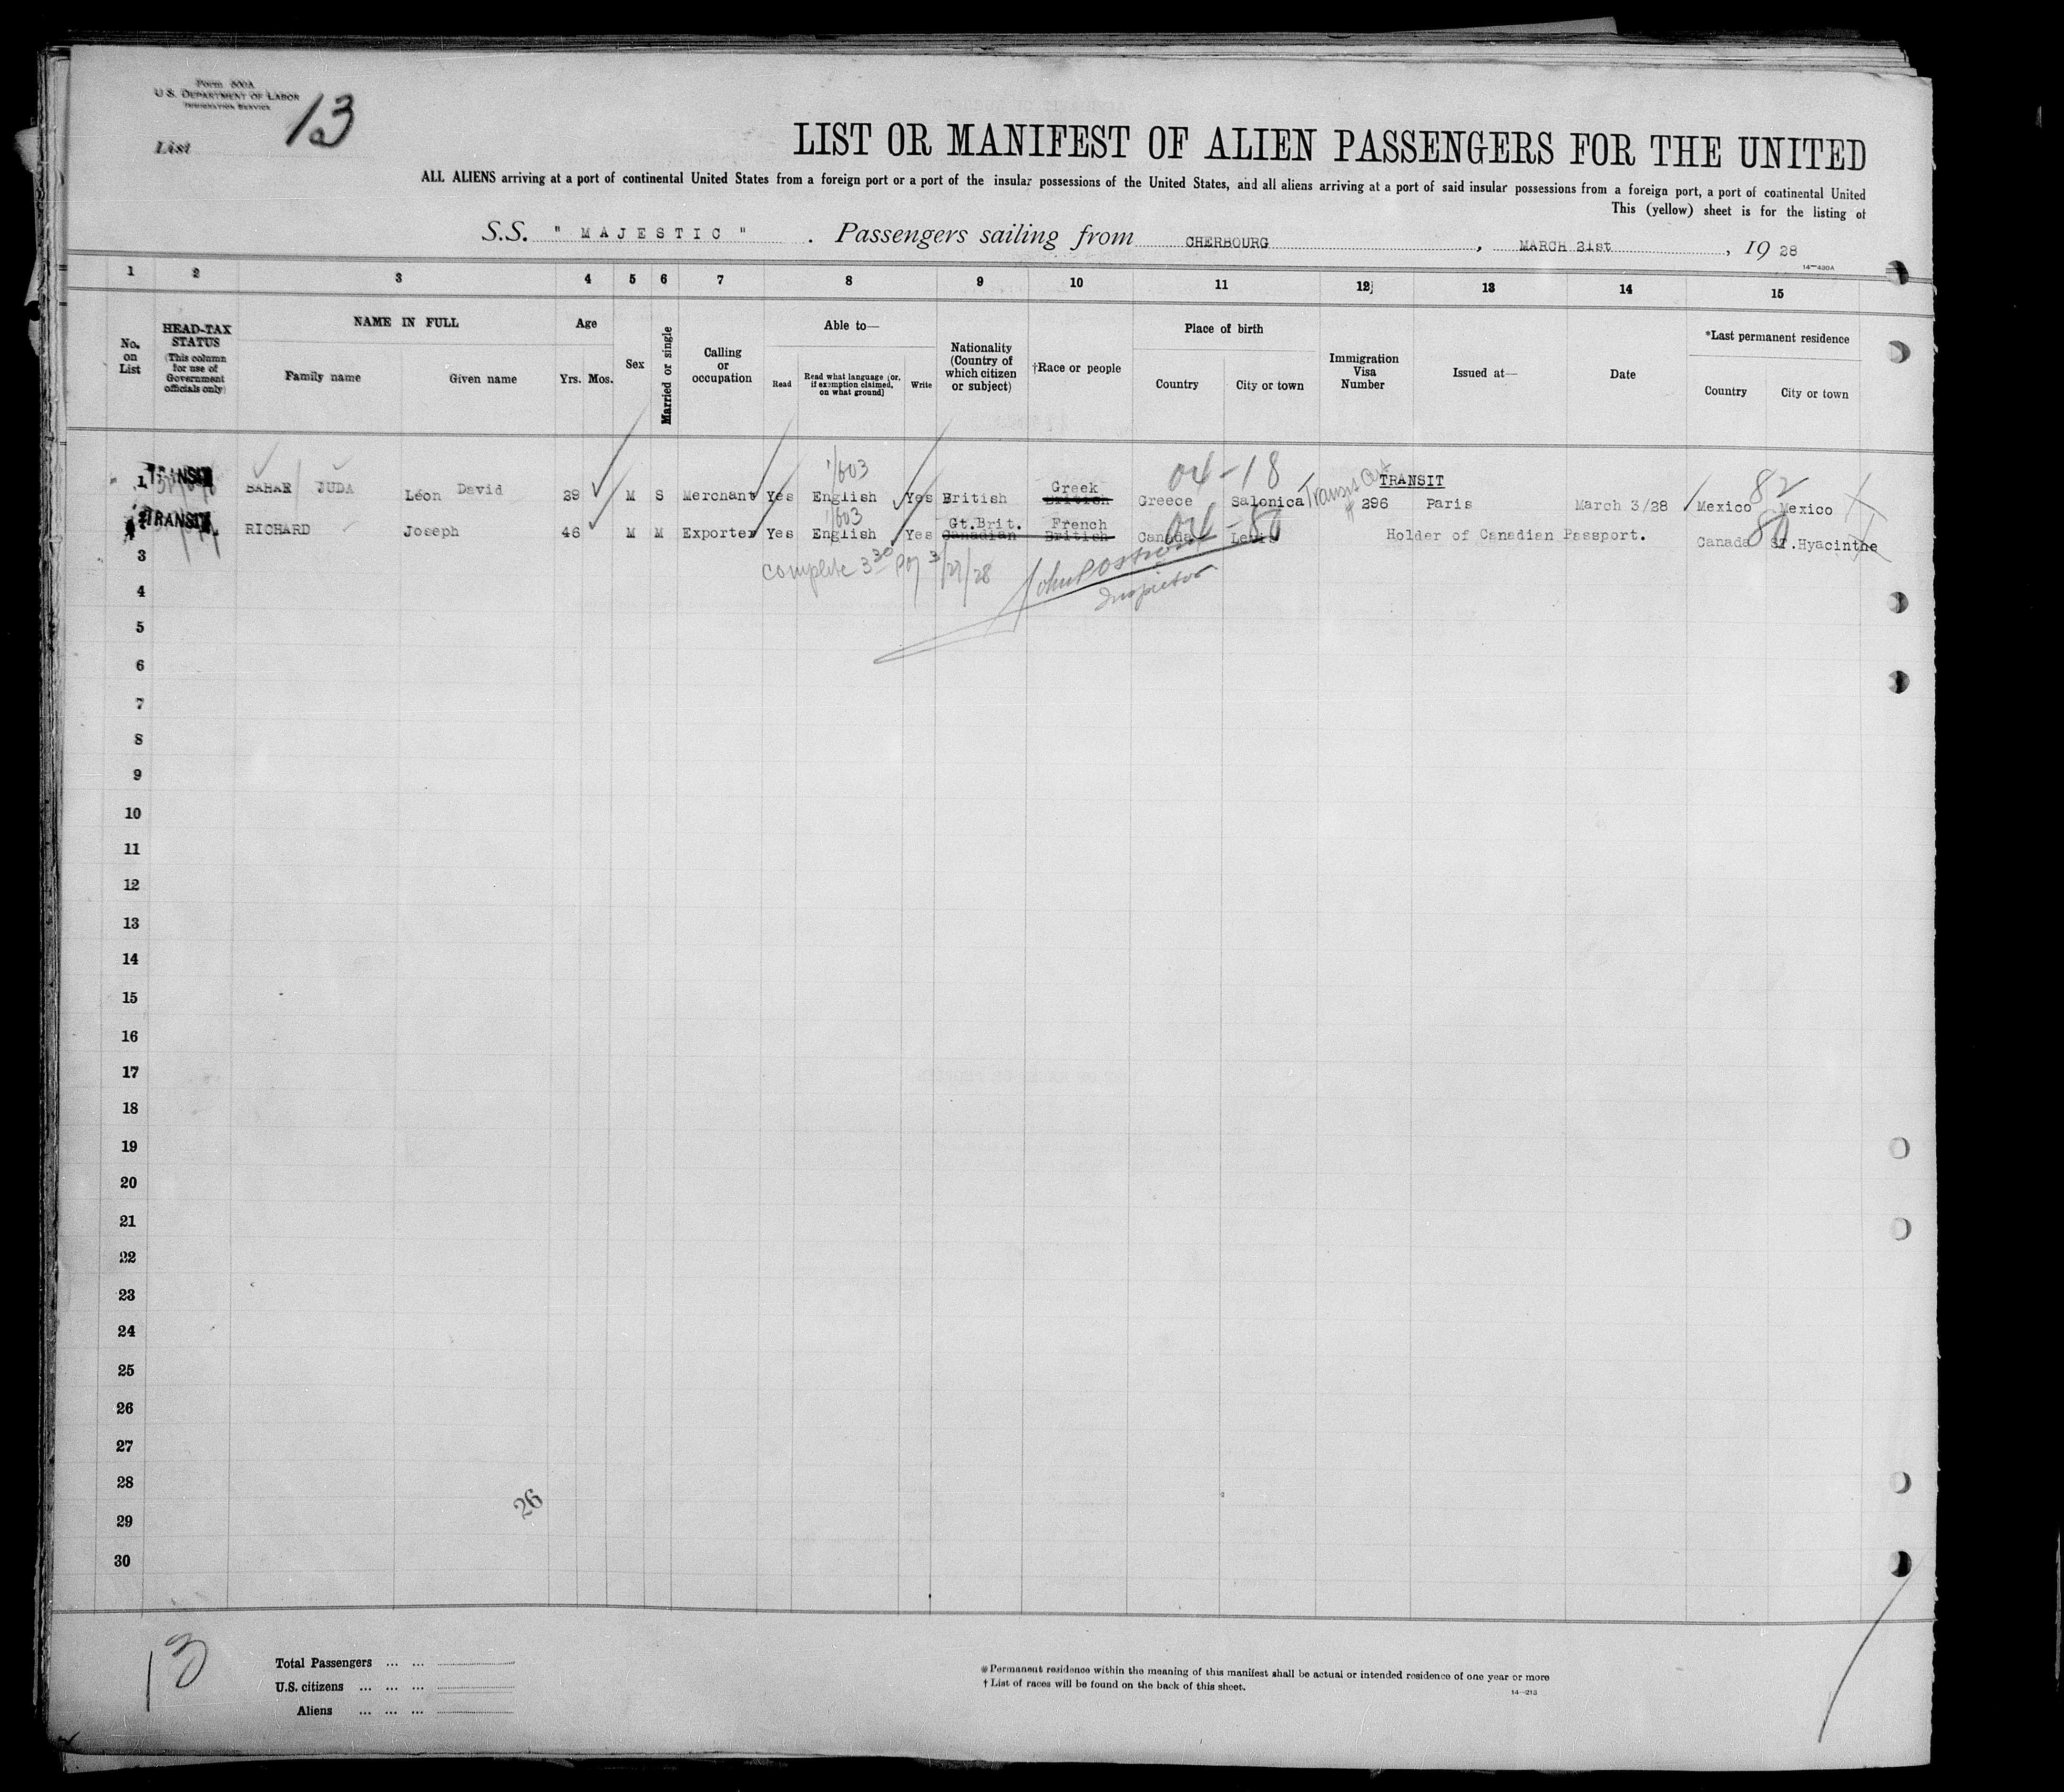 Form 500A
U. S. DEPARTMENT OF LABOR
IMMIGRATION SERVICE
List 13
LIST OR MANIFEST OF ALIEN PASSENGERS FOR THE UNITED
ALL ALIENS arriving at a port of continental United States from a foreign port or a port of the insular possessions of the United States, and all aliens arriving at a port of said insular possessions from a foreign port, a port of continental United
This (yellow) sheet is for the listing of
S.S. " MAJESTIC " . Passengers sailing from CHERBOURG , MARCH 21st , 19 28
14—430A
1 2 3 4 5 6 7 8 9 10 11 12 13 14 15
No. on List
HEAD-TAX STATUS
(This column for use of Government officials only)
NAME IN FULL
Family name Given name
Age
Yrs. Mos.
Sex
Married or single
Calling or occupation
Able to—
Read
Read what language (or, if exemption claimed, on what ground)
Write
Nationality (Country of which citizen or subject)
†Race or people
Place of birth
Country City or town
Immigration Visa Number
Issued at—
Date
*Last permanent residence
Country City or town
1/603 04-18 TRANSIT 82
1 TRANSIT JUDA Léon David 29 M S Merchant Yes English Yes British Greek British Greece Salonica Transit 296 Paris March 3/28 Mexico Mexico
1/603 80
2 TRANSIT RICHARD Joseph 46 M M Exporter Yes English Yes Gt.Brit. Canadian French British Canada Levis Holder of Canadian Passport. Canada ST.Hyacinthe
complete 3 30 3/27/28
Inspector
3
4
5
6
7
8
9
10
11
12
13
14
15
16
17
18
19
20
21
22
23
24
25
26
27
28
29
30
26
13
Total Passengers ... ...
U.S. citizens ... ... ...
Aliens ... ... ...
*Permanent residence within the meaning of this manifest shall be actual or intended residence of one year or more
†List of races will be found on the back of this sheet.
14—213